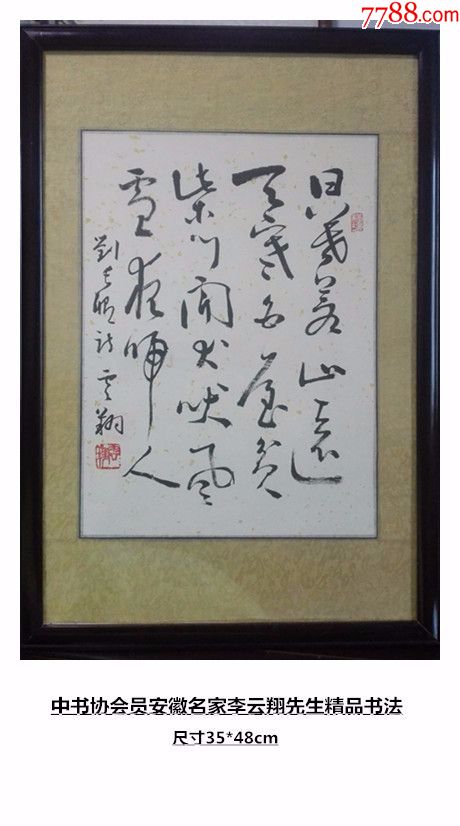 7788.com
日暮蒼山遠
天寒白屋貧
柴门闻犬吠风
雪夜歸人
劉長卿诗雲翔
中书协会员安徽名家李云翔先生精品书法
尺寸35*48cm